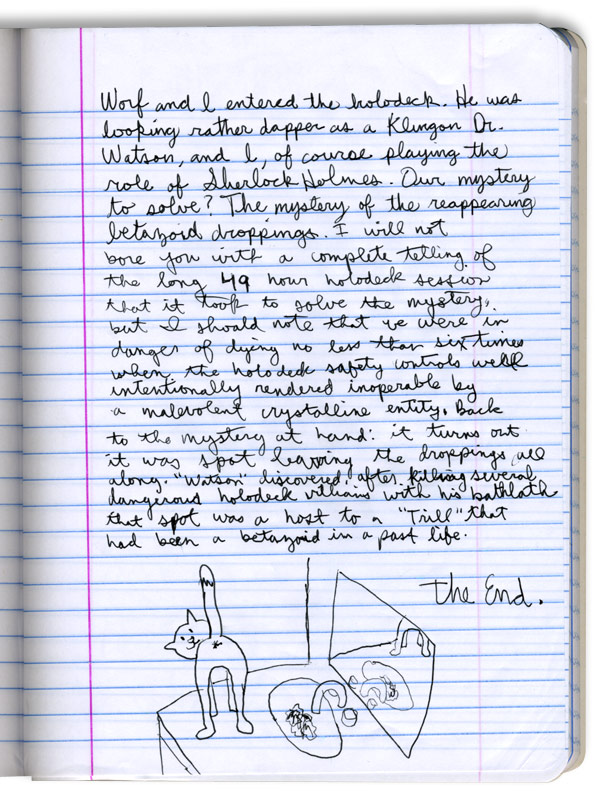 Worf and I entered the holodeck. He was
looking rather dapper as a Klingon Dr.
Watson, and I, of course playing the
role of Sherlock Holmes. Our mystery
to solve? The mystery of the reappearing
betazoid droppings. I will not
bore you with a complete telling of
the long 49 hour holodeck session
that it took to solve the mystery,
but I should note that we were in
danger of dying no less than six times
when the holodeck safety controls were
intentionally rendered inoperable by
a malevolent crystalline entity. Back
to the mystery at hand: it turns out
it was spot leaving the droppings all
along. "Watson" discovered, after killing several
dangerous holodeck villians with his bathlath
that spot was a host to a "Trill" that
had been a betazoid in a past life.
The End.